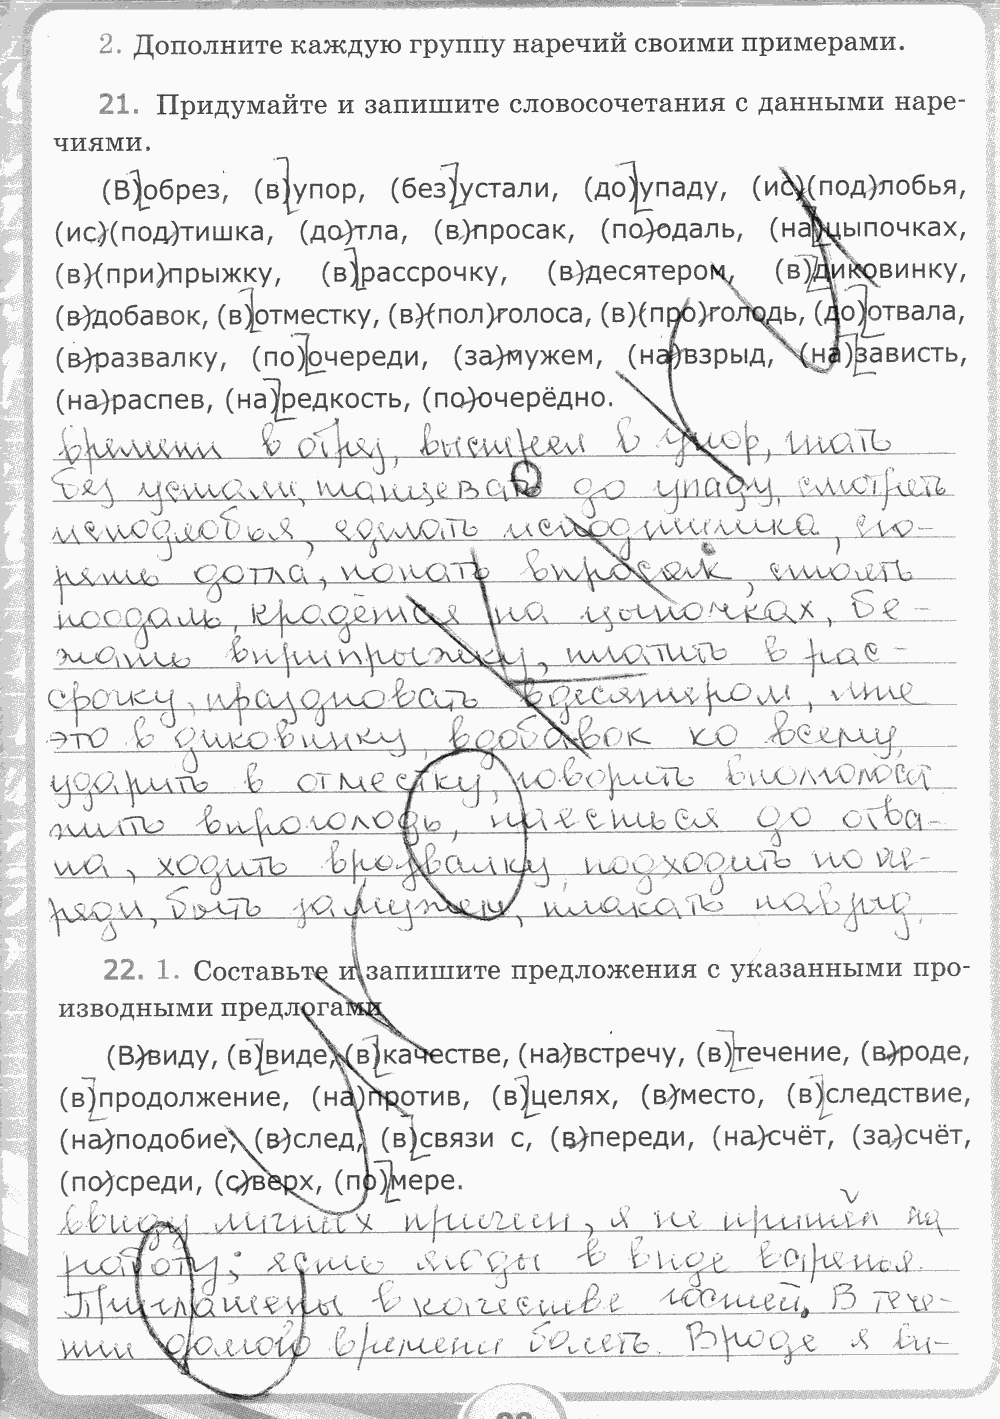 2. Дополните каждую группу наречий своими примерами.
21. Придумайте и запишите словосочетания с данными наре-
чиями.
(В)обрез, (в)упор, (без)устали, (до)упаду, (ис)(под)лобья,
(ис)(под)тишка, (до)тла, (в)просак, (по)одаль, (на)цыпочках,
(в)(при)прыжку, (в)рассрочку, (в)десятером, (в)диковинку,
(в)добавок, (в)отместку, (в)(пол)голоса, (в)(про)голодь, (до)отвала,
(в)развалку, (по)очереди, (за)мужем, (на)взрыд, (на)зависть,
(на)распев, (на)редкость, (по)очерёдно.
времени в обрез, выстрел в упор, гнать
без устали, танцевать до упаду, смотреть
исподлобья, сделать исподтишка, сго-
реть дотла, попасть впросак, стоять
поодаль, крадётся на цыпочках, бе-
жать вприпрыжку, платить в рас-
срочку, праздновать вдесятером, мне
это в диковинку, вдобавок ко всему,
ударить в отместку, говорить вполголоса
жить впроголодь, наесться до отва-
ла, ходить вразвалку, подходить по че-
реди, быть замужем, плакать навзрыд,
22. 1. Составьте и запишите предложения с указанными про-
изводными предлогами
(В)виду, (в)виде, (в)качестве, (на)встречу, (в)течение, (в)роде,
(в)продолжение, (на)против, (в)целях, (в)место, (в)следствие,
(на)подобие, (в)след, (в)связи с, (в)переди, (на)счёт, (за)счёт,
(по)среди, (с)верх, (по)мере.
Ввиду личных причин, я не пришёл на
работу; есть ягоды в виде варенья.
Приглашены в качестве гостей. В тече-
нии долгого времени болеть. Вроде я ви-